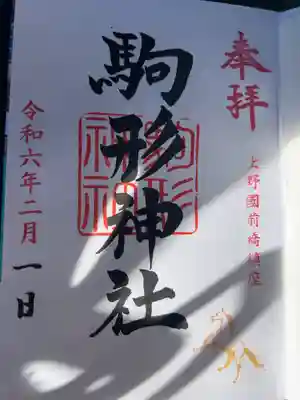 奉拝
上野國前橋鎮座
駒形神社
駒形神社
令和六年二月一日